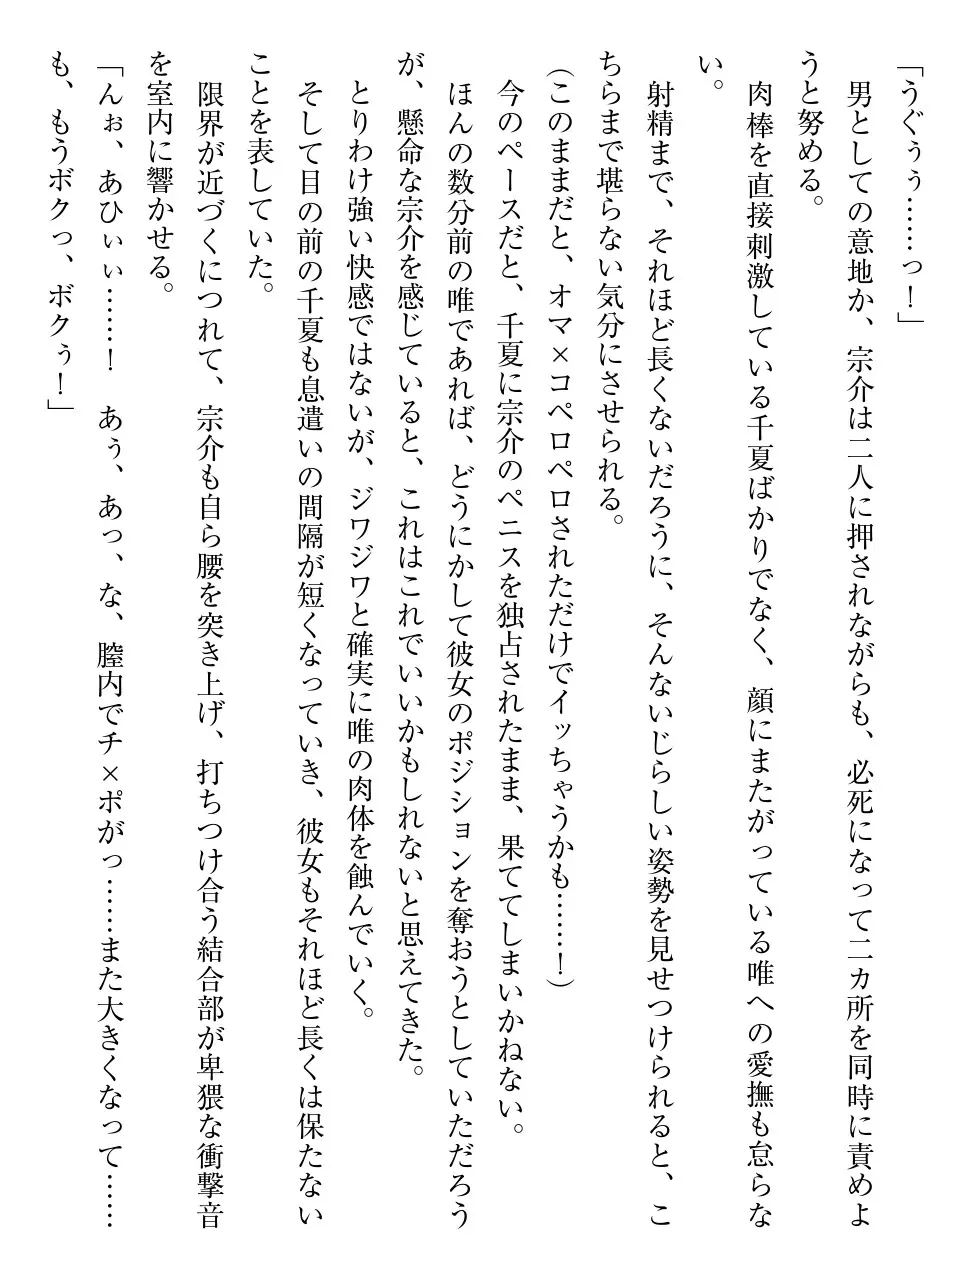 「うぐぅぅ……っ！」
　男としての意地か、宗介は二人に押されながらも、必死になって二カ所を同時に責めよ
うと努める。
　肉棒を直接刺激している千夏ばかりでなく、顔にまたがっている唯への愛撫も怠らな
い。
　射精まで、それほど長くないだろうに、そんないじらしい姿勢を見せつけられると、こ
ちらまで堪らない気分にさせられる。
（このままだと、オマ×コペロペロされただけでイッちゃうかも……！）
　今のペースだと、千夏に宗介のペニスを独占されたまま、果ててしまいかねない。
　ほんの数分前の唯であれば、どうにかして彼女のポジションを奪おうとしていただろう
が、懸命な宗介を感じていると、これはこれでいいかもしれないと思えてきた。
　とりわけ強い快感ではないが、ジワジワと確実に唯の肉体を蝕んでいく。
　そして目の前の千夏も息遣いの間隔が短くなっていき、彼女もそれほど長くは保たない
ことを表していた。
　限界が近づくにつれて、宗介も自ら腰を突き上げ、打ちつけ合う結合部が卑猥な衝撃音
を室内に響かせる。
「んぉ、あひぃぃ……！　あぅ、あっ、な、膣内でチ×ポがっ……また大きくなって……
も、もうボクっ、ボクぅ！」